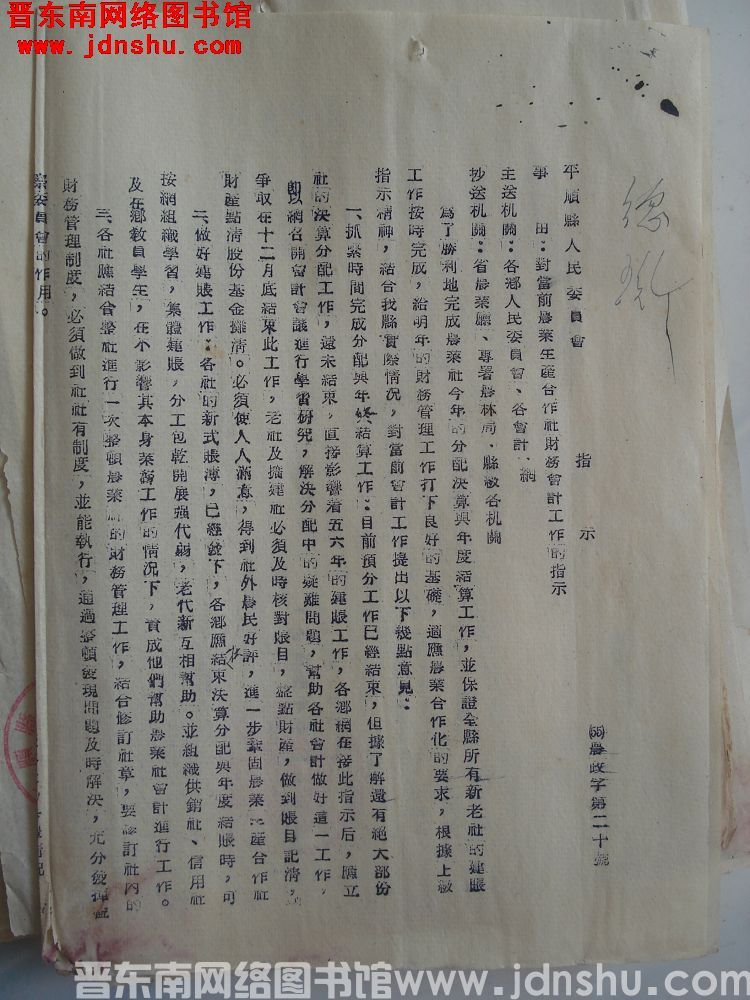 晋东南网络图书馆
www.jdnshu.com
平順縣人民委員會
指示
(55)農政字第二十號
事由:對當前農業生產合作社財務會計工作的指示
主送机關:各鄉人民委員會、各會計網
抄送机關:省農業廳、專署農林局、縣級各机關
為了勝利地完成農業社今年的分配決算與年度結算工作,並保證全縣所有新老社的建賬
工作按時完成,給明年的財務管理工作打下良好的基礎,適應農業合作化的要求,根據上級
指示精神,結合我縣實際情況,對當前會計工作提出以下幾點意見:
一、抓緊時間完成分配與年終結算工作:目前預分工作已經結束,但據了解還有絕大部份
社的決算分配工作,還未結束,直接影響着五六年的建賬工作,各鄉網在接此指示后,應立
即以網召開會計會議進行學習研究,解決分配中的疑難問題,幫助各社會計做好這一工作,
爭取在十二月底結束此工作,老社及擴建社必須及時核對賬目,盤點財產,做到賬目記清,
財產點清股份基金攤清。必須使人人滿意,得到社外農民好評,進一步鞏固農業生產合作社
二、做好建賬工作:各社的新式賬簿,已經發下,各鄉應結束決算分配與年度結賬時,可
按網組織學習,集體建賬,分工包乾開展强代弱,老代新互相幫助。並組織供銷社、信用社
及在鄉教員學生,在不影響其本身業務工作的情況下,責成他們幫助農業社會計進行工作。
三、各社應結合整社進行一次整頓農業社的財務管理工作,結合修訂社章,要修訂社內的
財務管理制度,必須做到社社有制度,並能執行,通過整頓發現問題及時解決,充分發揮監
察委員會的作用。
晋东南网络图书馆 www.jdnshu.com